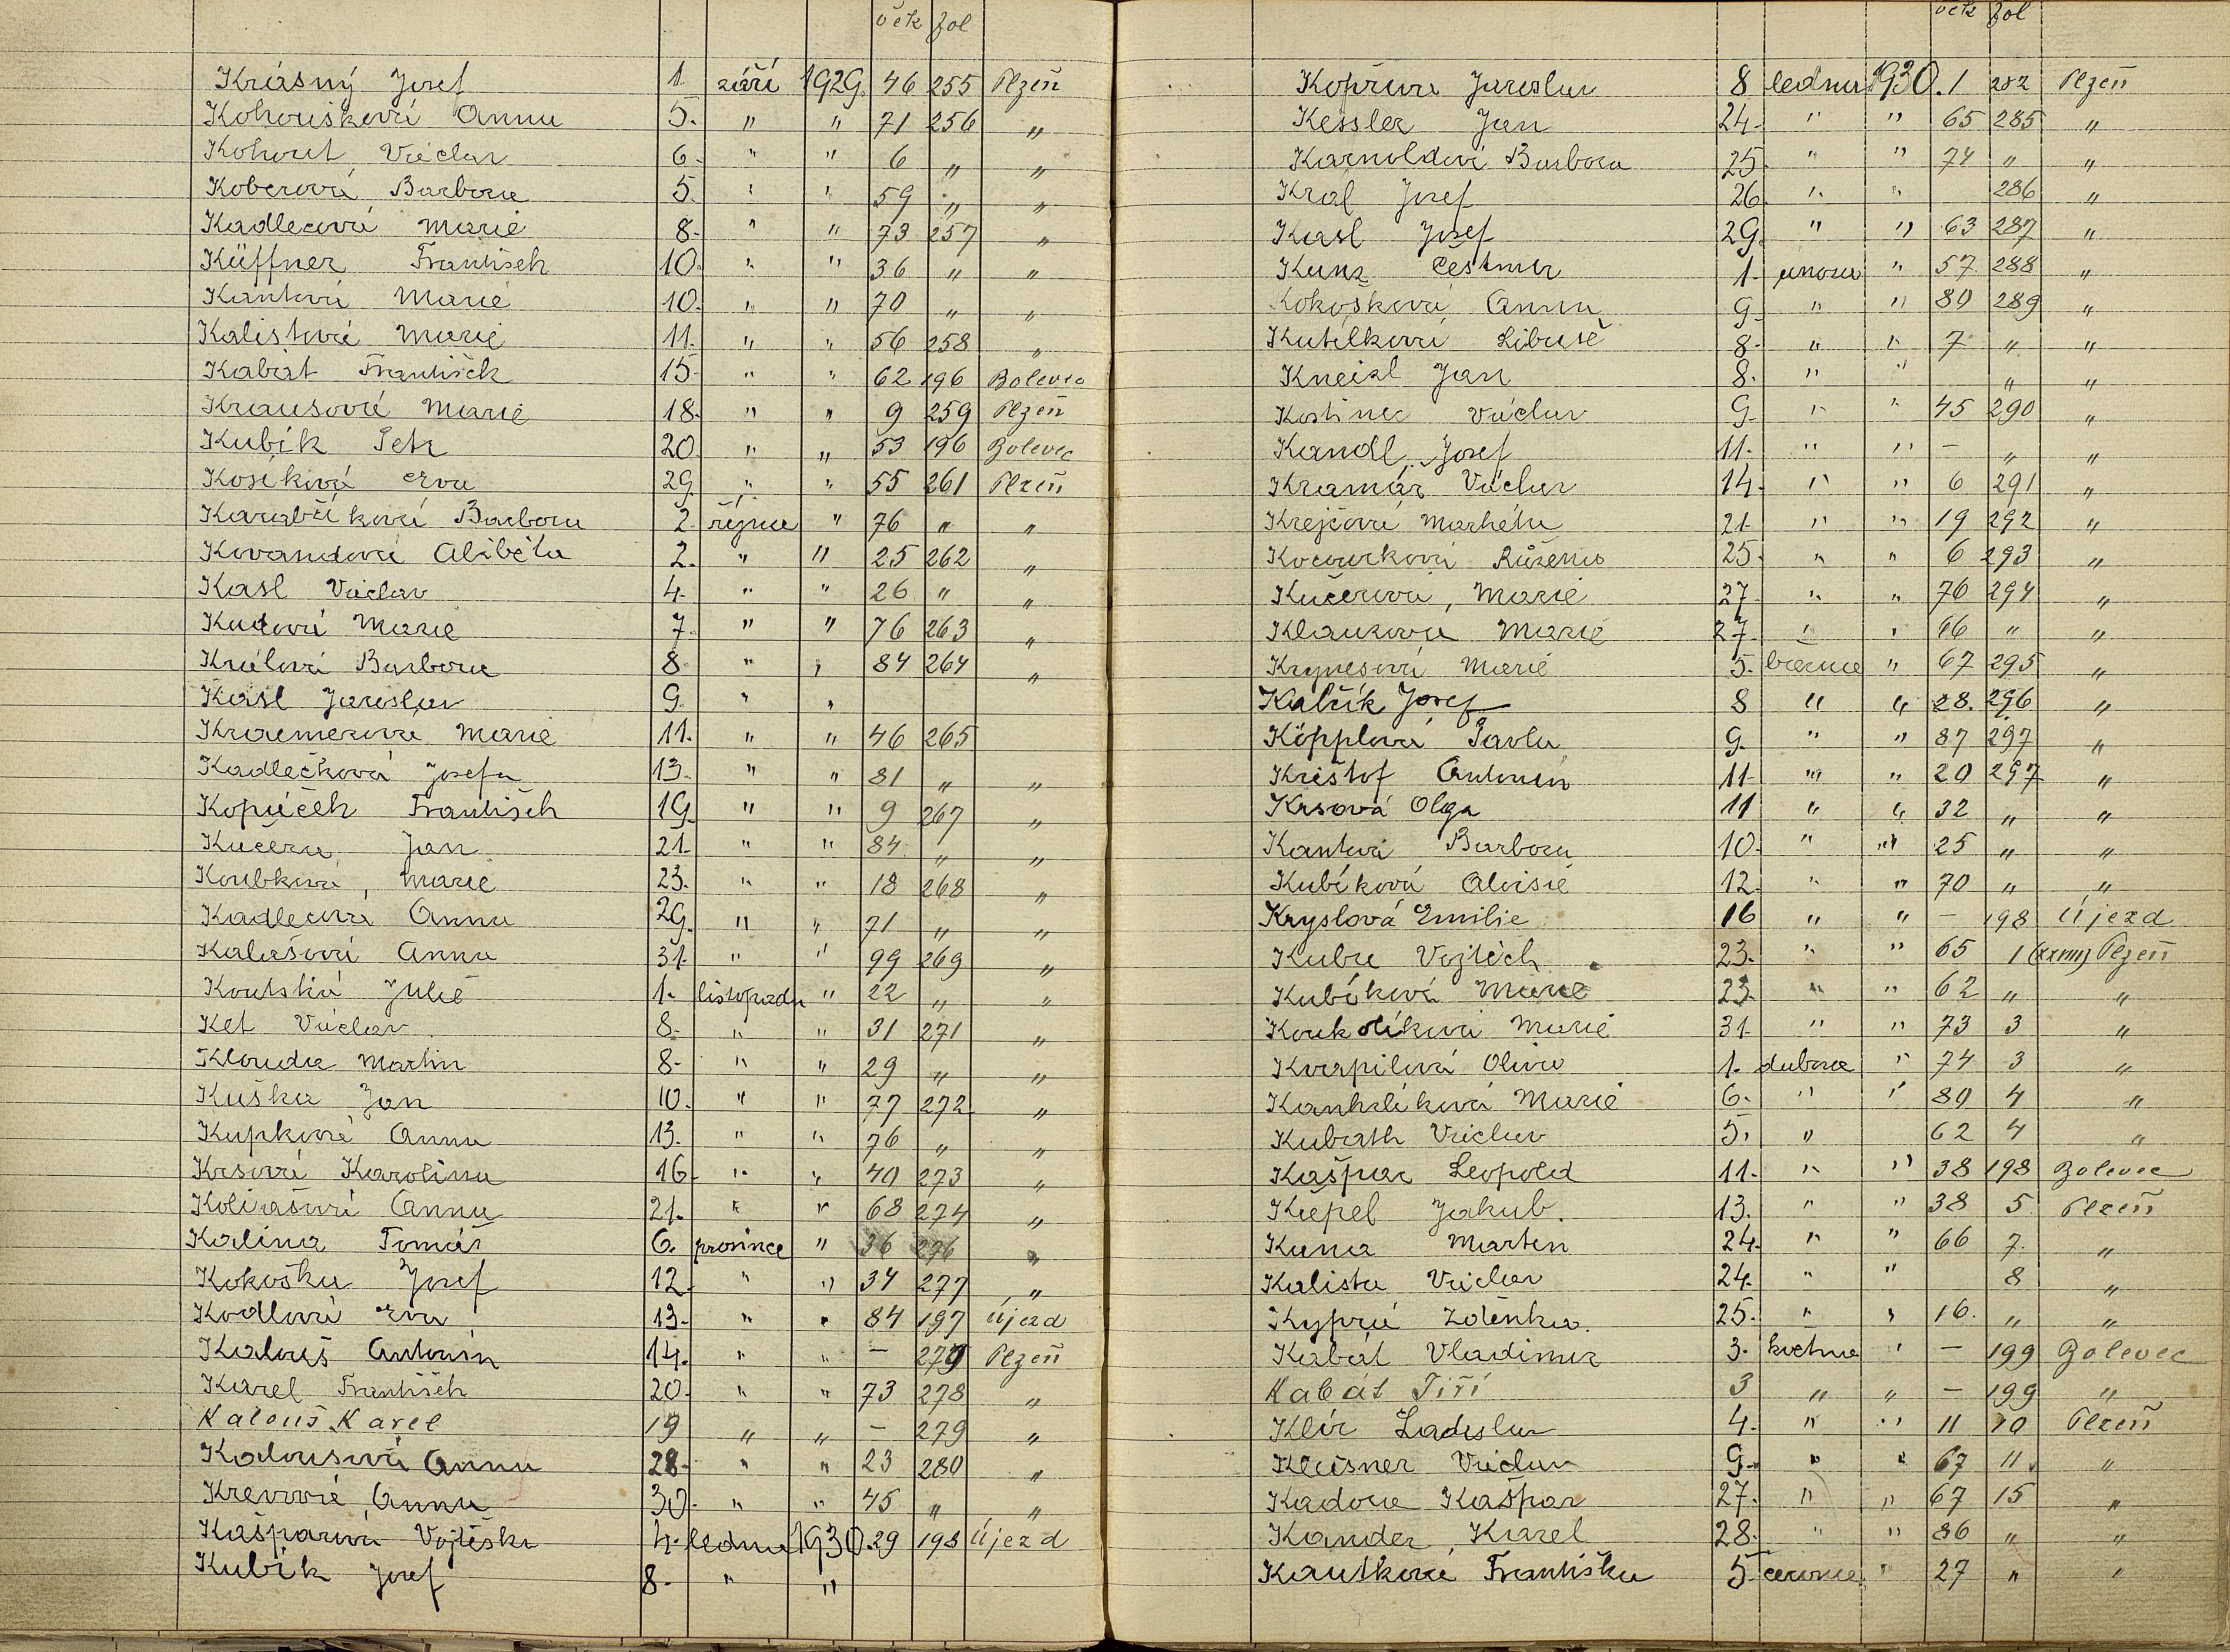 věk fol
Krásný Josef 1. září 1929. 46 255 Plzeň
Kohoušková Anna 5. " " 71 256 "
Kohout Václav 6. " " 6 " "
Koberová Barbora 5. " " 59 " "
Kadlecová Marie 8. " " 73 257 "
Küffner František 10. " " 36 " "
Kantová Marie 10. " " 70 " "
Kalistová Marie 11. " " 56 258 "
Kabát František 15. " " 62 196 Bolevec
Krausová Marie 18. " " 9 259 Plzeň
Kubík Petr 20. " " 53 196 Bolevec
Kosíková Eva 29. " " 55 261 Plzeň
Karabčíková Barbora 2. října " 76 " "
Kovandová Alžběta 2. " " 25 262 "
Kasl Václav 4. " " 26 " "
Kudová Marie 7. " " 76 263 "
Králová Barbora 8. " " 84 264 "
Kasl Jaroslav 9. " "
Kraemerová Marie 11. " " 46 265
Kadlečková Josefa 13. " " 81 " "
Kopáček František 19. " " 9 267 "
Kučera Jan 21. " " 84 " "
Koubková, Marie 23. " " 18 268 "
Kadlecová Anna 29. " " 71 " "
Kalašová Anna 31. " " 99 269 "
Koutská Julie 1. listopadu " 22 " "
Ket Václav 8. " " 31 271 "
Klouda Martin 8. " " 29 " "
Kuška Jan 10. " " 77 272 "
Kupková Anna 13. " " 76 " "
Krsová Karolina 16. " " 40 273 "
Anna 21. " " 68 274 "
Kalina Tomáš 6. prosince " 36 276 "
Kokoška Josef 12. " " 34 277 "
Kodlová Eva 13. " " 84 197 Újezd
Kalouš Antonín 14. " " – 279 Plzeň
Karel František 20. " " 73 278 "
Kalouš Karel 19 " " – 279 "
Kalousová Anna 28. " " 23 280 "
Anna 30. " " 45 " "
Kašparová Vojtěška 4. ledna 1930. 29 198 Újezd
Kubík Josef 8. " "
věk fol
Kopřiva Jaroslav 8 ledna 1930. 1 282 Plzeň
Kessler Jan 24. " " 65 285 "
Karnoldová Barbora 25. " " 74 " "
Kral Josef 26. " " 286 "
Kasl Josef 29. " " 63 287 "
Kunz Čestmír 1. února " 57 288 "
Kokošková Anna 9. " " 80 289 "
Kutílková Libuše 8. " " 7 " "
Kneisl Jan 8. " " " "
Kostinec Václav 9. " " 45 290 "
Kandl Josef 11. " " – " "
Kramár Václav 14. " " 6 291 "
Krejčová Markéta 21. " " 19 292 "
Kocourková Růžena 25. " " 6 293 "
Kučerová, Marie 27. " " 76 294 "
Marie 27. " " 66 " "
Marie 5. března " 67 295 "
Kalčík Josef 8 " " 28. 296 "
Köpplová Pavla 9. " " 87 297 "
Krištof Antonín 11. " " 20 297 "
Krsová Olga 11 " " 32 " "
Kantová Barbora 10. " " 25 " "
Kubíková Aloisie 12. " " 70 " "
Kryslová Emilie 16 " " – 198 Újezd
Kuba Vojtěch 23. " " 65 1 (XXVIII) Plzeň
Kubíková Marie 23. " " 62 " "
Koukolíková Marie 31. " " 73 3 "
Kvapilová Oliva 1. dubna " 74 3 "
Kanhäliková Marie 6. " " 80 4 "
Kubath Václav 5. " 62 4 "
Kašpar Leopold 11. " " 38 198 Bolevec
Kepel Jakub. 13. " " 38 5 Plzeň
Kuna Martin 24. " " 66 7. "
Kalista Václav 24. " " 8 "
Kyprá Zdenka. 25. " " 16. " "
Kabát Vladimír 3. května " – 199 Bolevec
Kabát Jiří 3 " " – 199 "
Klír Ladislav 4. " " 11 10 Plzeň
Kleisner Václav 9. " " 67 11. "
Kadora Kašpar 27. " " 67 15 "
Kander, Karel 28. " " 86 " "
Kautková Františka 5. června " 27 " "